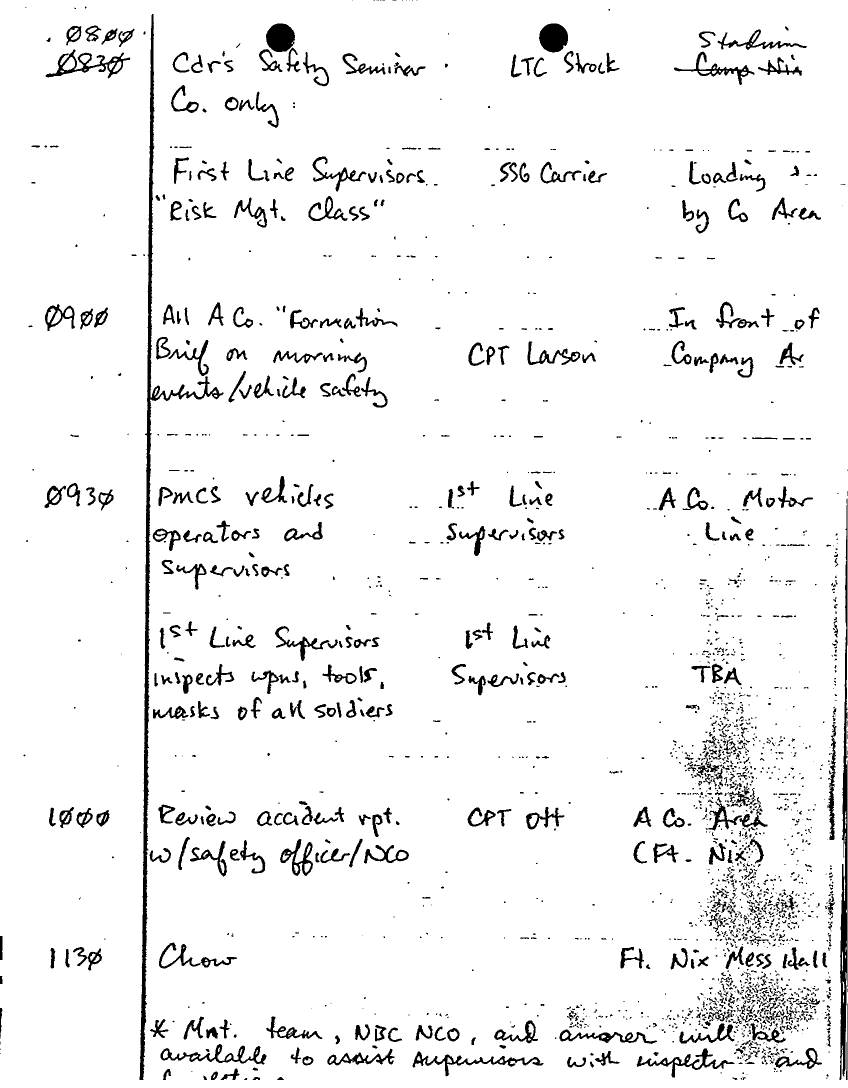 0800 Stadium
0830 Cdr's Safety Seminar LTC Strock Camp Nix
Co. only
First Line Supervisors SSG Carrier Loading
"Risk Mgt. Class" by Co Area
0900 All A Co. "Formation In front of
Brief on morning CPT Larson Company Ar
events/vehicle safety
0930 PMCS vehicles 1st Line A Co. Motor
operators and Supervisors Line
Supervisors
1st Line Supervisors 1st Line
inspects wpns, tools, Supervisors TBA
masks of all soldiers
1000 Review accident rpt. CPT Ott A Co. Area
w/safety officer/NCO (Ft. Nix)
1130 Chow Ft. Nix Mess Hall
* Mnt. team, NBC NCO, and amorer will be
available to assist supervisors with inspection and